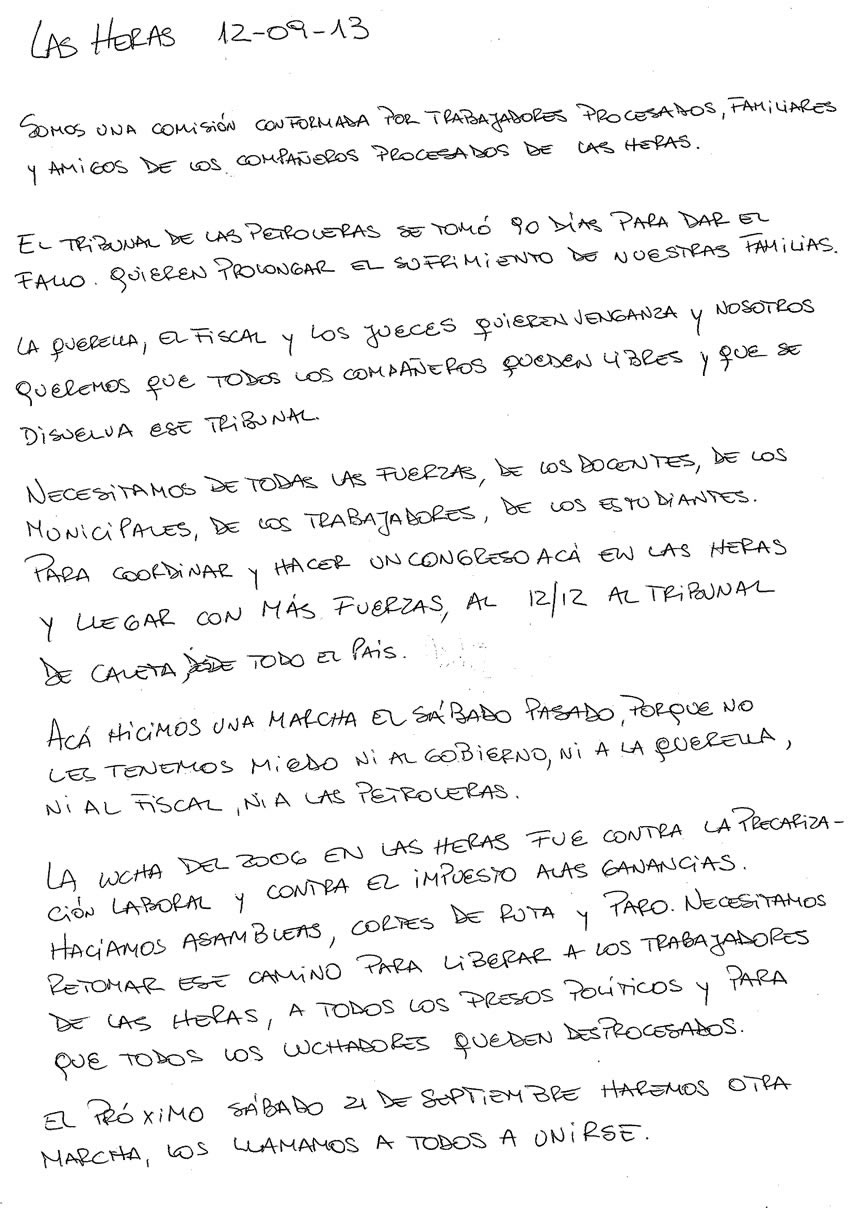 LAS HERAS 12-09-13
SOMOS UNA COMISIÓN CONFORMADA POR TRABAJADORES PROCESADOS, FAMILIARES
Y AMIGOS DE LOS COMPAÑEROS PROCESADOS DE LAS HERAS.
EL TRIBUNAL DE LAS PETROLERAS SE TOMÓ 90 DÍAS PARA DAR EL
FALLO. QUIEREN PROLONGAR EL SUFRIMIENTO DE NUESTRAS FAMILIAS.
LA QUERELLA, EL FISCAL Y LOS JUECES QUIEREN VENGANZA Y NOSOTROS
QUEREMOS QUE TODOS LOS COMPAÑEROS QUEDEN LIBRES Y QUE SE
DISUELVA ESE TRIBUNAL.
NECESITAMOS DE TODAS LAS FUERZAS, DE LOS DOCENTES, DE LOS
MUNICIPALES, DE LOS TRABAJADORES, DE LOS ESTUDIANTES.
PARA COORDINAR Y HACER UN CONGRESO ACÁ EN LAS HERAS
Y LLEGAR CON MÁS FUERZAS, AL 12/12 AL TRIBUNAL
DE CALETA, DE TODO EL PAÍS.
ACÁ HICIMOS UNA MARCHA EL SÁBADO PASADO, PORQUE NO
LES TENEMOS MIEDO NI AL GOBIERNO, NI A LA QUERELLA,
NI AL FISCAL, NI A LAS PETROLERAS.
LA LUCHA DEL 2006 EN LAS HERAS FUE CONTRA LA PRECARIZA-
CIÓN LABORAL Y CONTRA EL IMPUESTO A LAS GANANCIAS.
HACÍAMOS ASAMBLEAS, CORTES DE RUTA Y PARO. NECESITAMOS
RETOMAR ESE CAMINO PARA LIBERAR A LOS TRABAJADORES
DE LAS HERAS, A TODOS LOS PRESOS POLÍTICOS Y PARA
QUE TODOS LOS LUCHADORES QUEDEN DESPROCESADOS.
EL PRÓXIMO SÁBADO 21 DE SEPTIEMBRE HAREMOS OTRA
MARCHA, LOS LLAMAMOS A TODOS A UNIRSE.